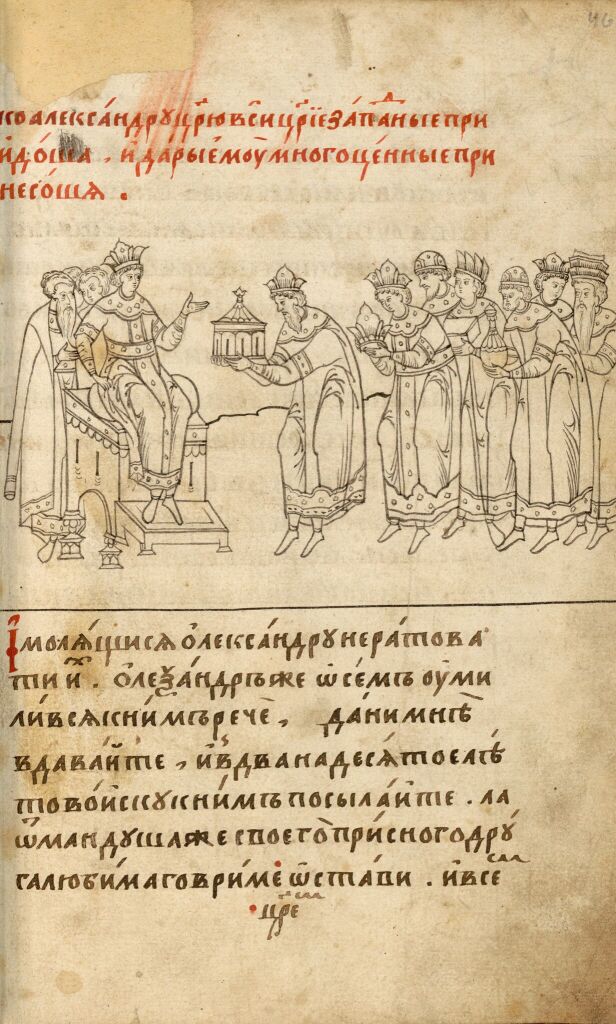 46
коалександру црю вси црїе западные при
идоша . и дары ему многоценные при
несоша .
И молящися олександру не ратова
ти и҃ . Олеѯандръ же ѿ семъ оуми
ливсѧ к ним рече , дани мнѣ
вдаваите , и в дванадесѧтое лѣ
то воиску к нимъ посылаите . ла
ѡмандуша же своего приснаго дру
га любима в риме ѡстави . и все
црє